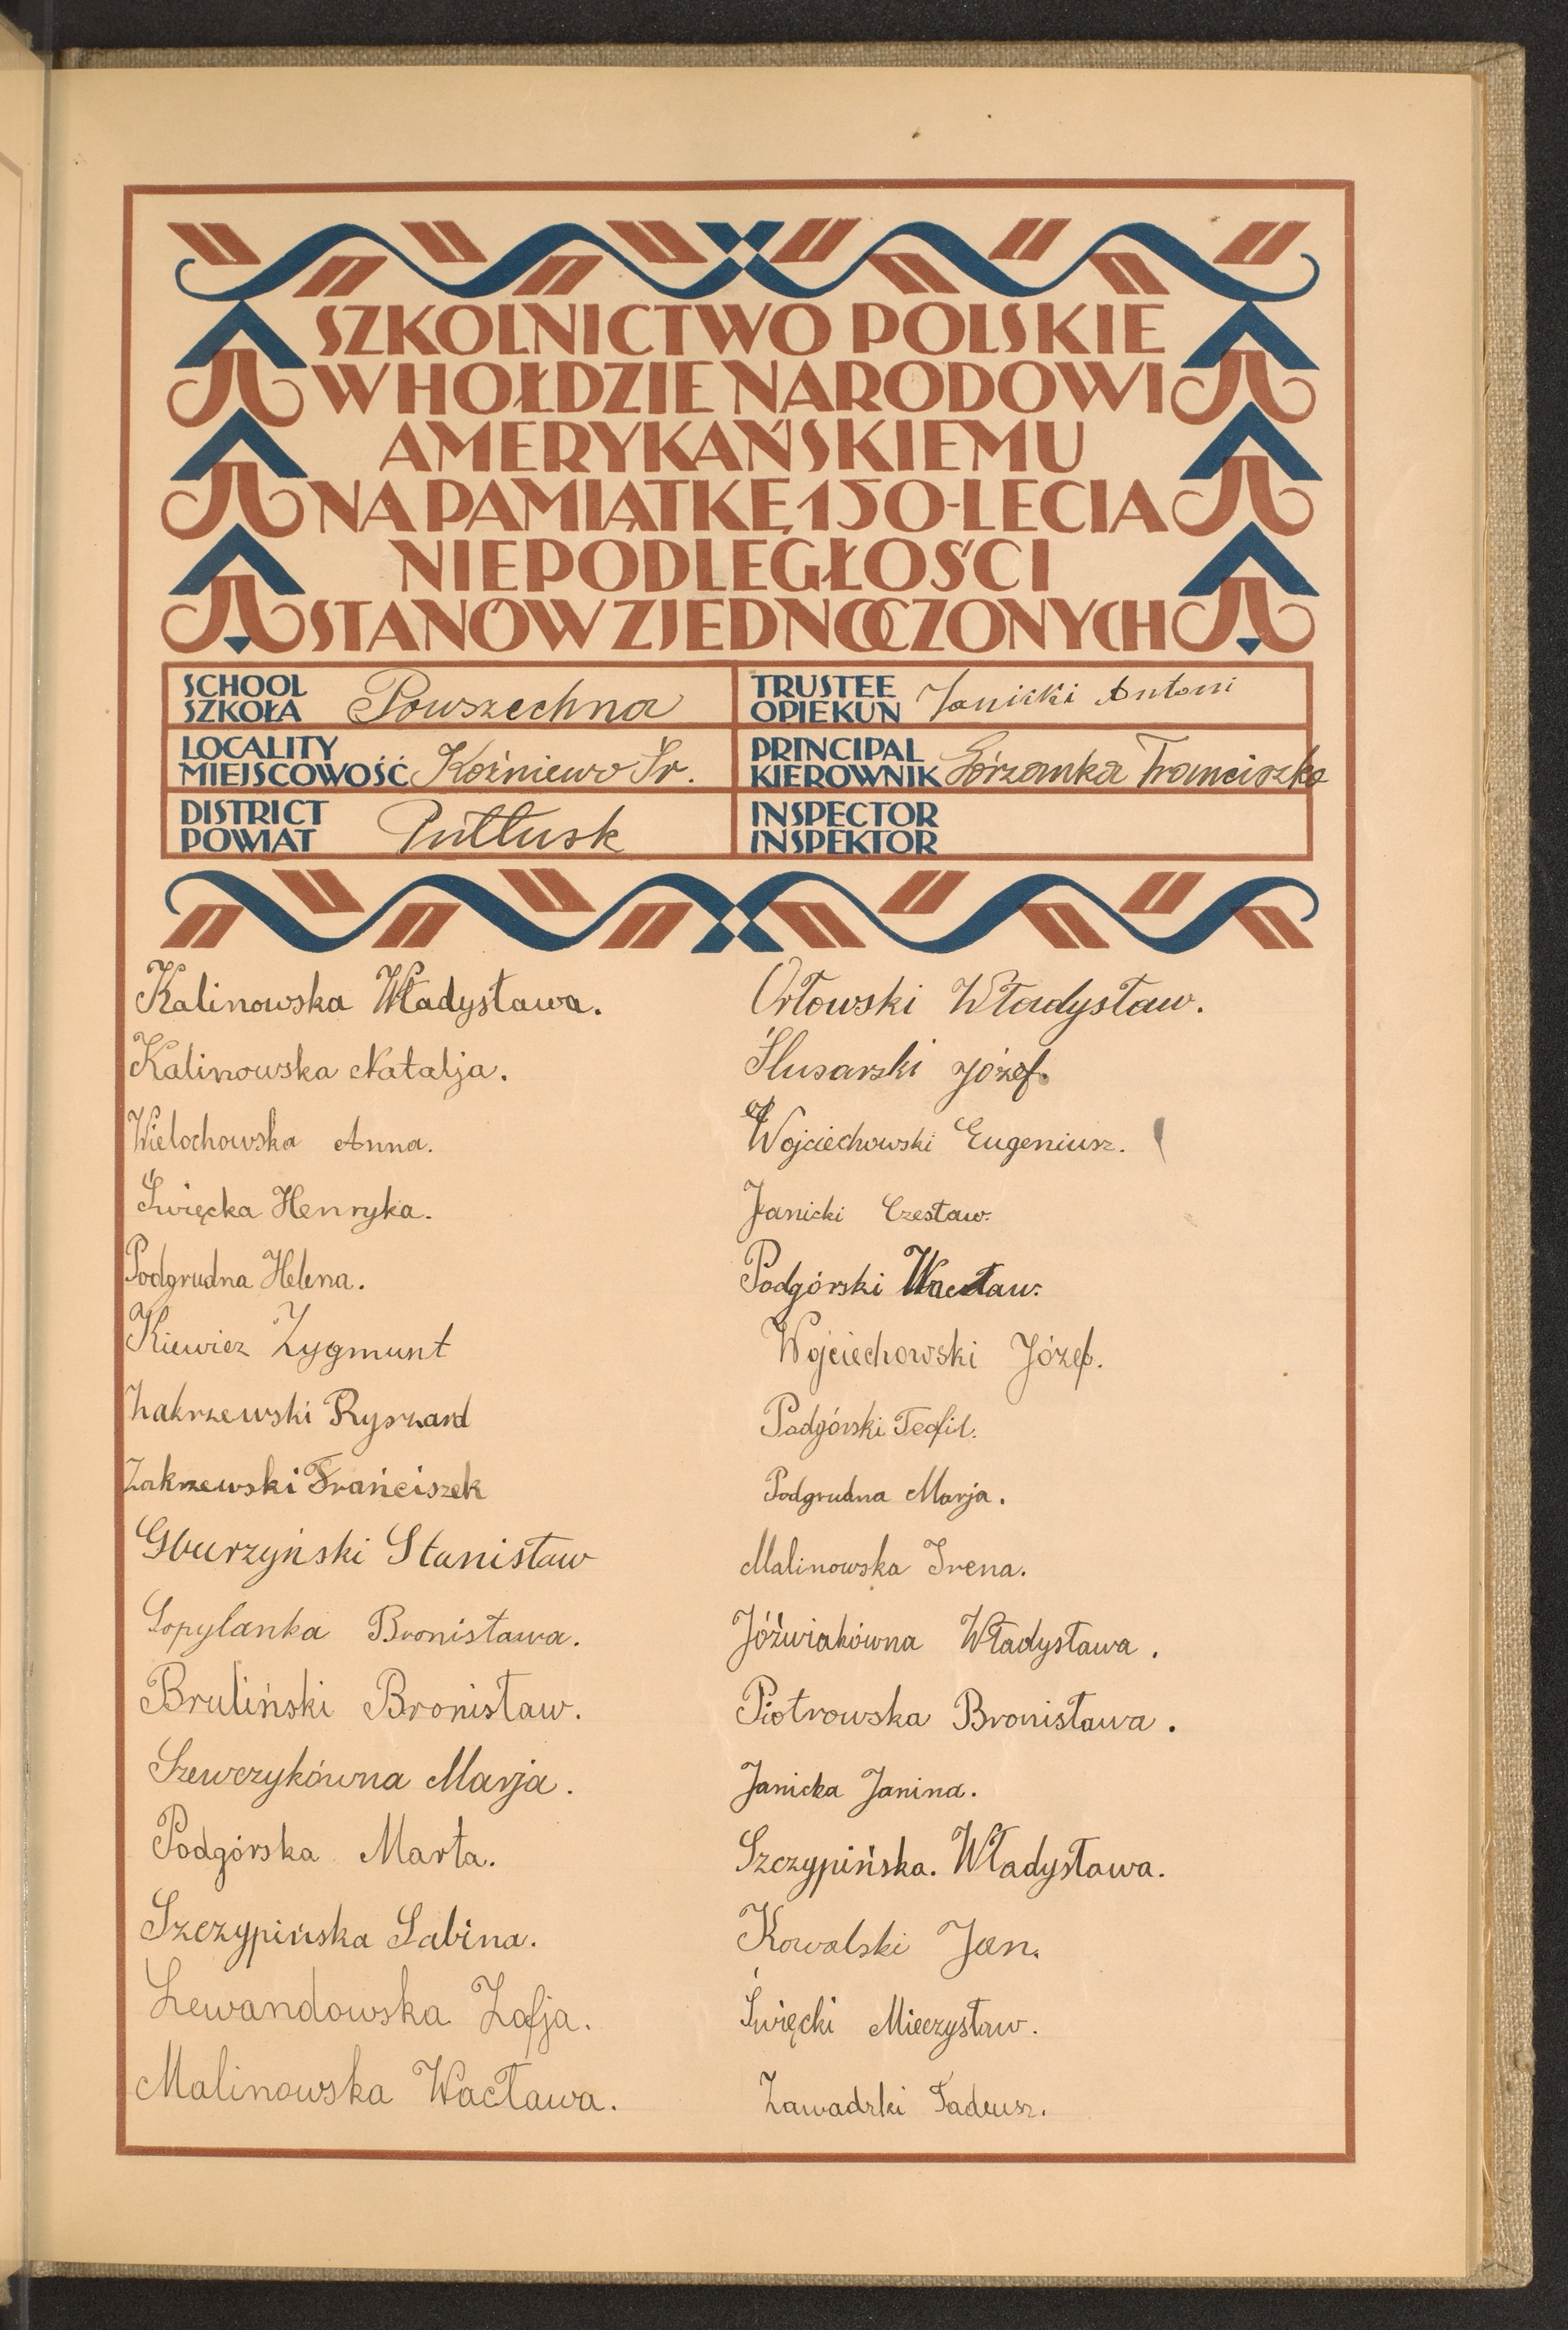 SZKOLNICTWO POLSKIE
W HOŁDZIE NARODOWI
AMERYKAŃSKIEMU
NA PAMIĄTKĘ 150-LECIA
NIEPODLEGŁOŚCI
STANÓW ZJEDNOCZONYCH
SCHOOL
SZKOŁA Powszechna
TRUSTEE
OPIEKUN Janicki Antoni
LOCALITY
MIEJSCOWOŚĆ Koźniewo Śr.
PRINCIPAL
KIEROWNIK Górzanka Franciszka
DISTRICT
POWIAT Pułtusk
INSPECTOR
INSPEKTOR
Kalinowska Władysława.
Kalinowska Natalja.
Wielochowska Anna.
Święcka Henryka.
Podgrudna Helena.
Kiewicz Zygmunt
Zakrzewski Ryszard
Zakrzewski Franciszek
Gburzyński Stanisław
Sopylanka Bronisława.
Bruliński Bronisław.
Szewczykówna Marja.
Podgórska Marta.
Szczypińska Sabina.
Lewandowska Zofja.
Malinowska Wacława.
Orłowski Władysław.
Ślusarski Józef.
Wojciechowski Eugeniusz.
Janicki Czesław.
Podgórski Wacław.
Wojciechowski Józef.
Podgórski Teofil.
Podgrudna Marja.
Malinowska Irena.
Jóźwiakówna Władysława.
Piotrowska Bronisława.
Janicka Janina.
Szczypińska. Władysława.
Kowalski Jan.
Święcki Mieczysław.
Zawadzki Tadeusz.